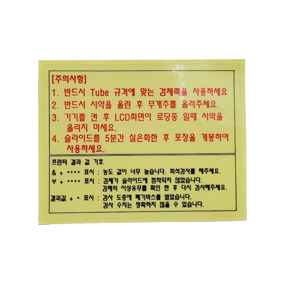 [주의사항]
1. 반드시 Tube 규격에 맞는 검체쪽을 사용하세요
2. 반드시 시약을 올린 후 무게추를 올려주세요.
3. 기기를 켠 후 LCD화면이 로딩중 일때 시약을
올리지 마세요.
4. 슬라이드를 5분간 실온화한 후 포장을 개봉하여
사용하세요.
프린터 결과 값 기호
& + **** 표시 : 농도 값이 너무 높습니다. 희석검사를 해주세요.
¥ + **** 표시 : 검체가 슬라이드에 점착되지 않았습니다.
검체의 이상유무를 확인 한 후 다시 검사해주세요.
결과값 + * 표시 : 검사 도중에 폐기박스를 열었습니다.
검사 수치는 정확하지 않을 수 있습니다.